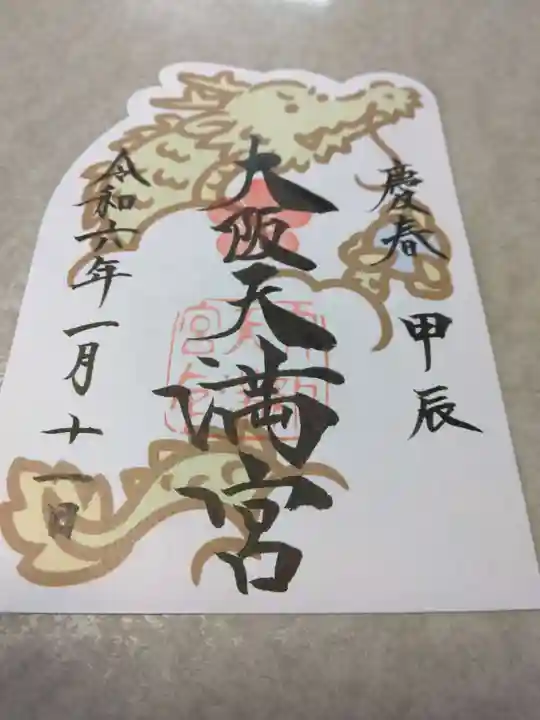 慶春
甲辰
大阪天満宮
令和六年一月十一日